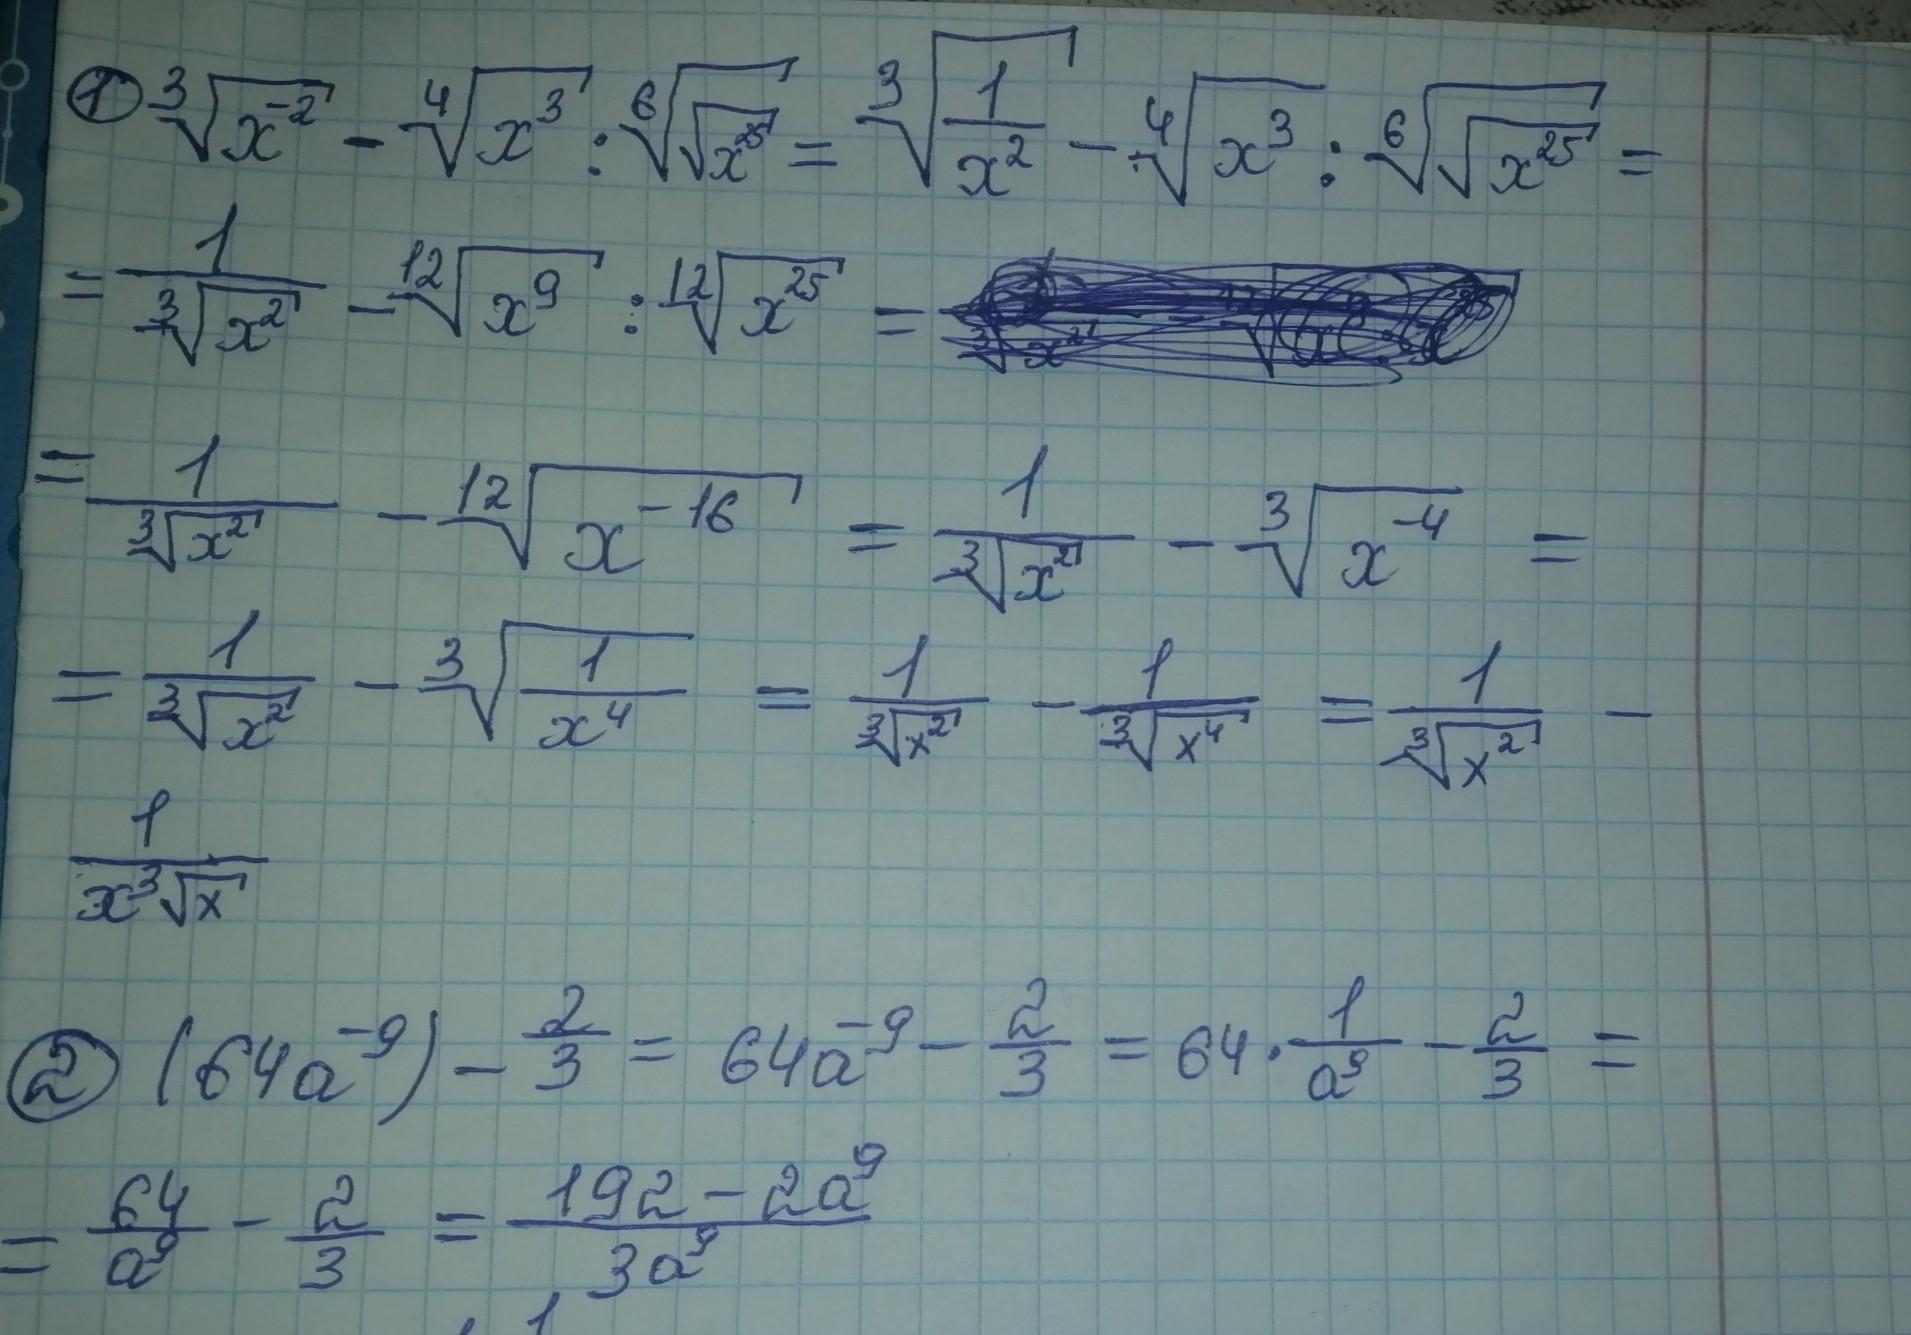 ① ∛(x⁻²) - ∜(x³) : ⁶√(√(x²⁵)) = ∛(1/x²) - ∜(x³) : ⁶√(√(x²⁵)) =
= 1/∛(x²) - ¹²√(x⁹) : ¹²√(x²⁵) =
= 1/∛(x²) - ¹²√(x⁻¹⁶) = 1/∛(x²) - ∛(x⁻⁴) =
= 1/∛(x²) - ∛(1/x⁴) = 1/∛(x²) - 1/∛(x⁴) = 1/∛(x²) -
1/(x∛x)
② (64a⁻⁹) - 2/3 = 64a⁻⁹ - 2/3 = 64 · 1/a⁹ - 2/3 =
= 64/a⁹ - 2/3 = (192 - 2a⁹)/(3a⁹)